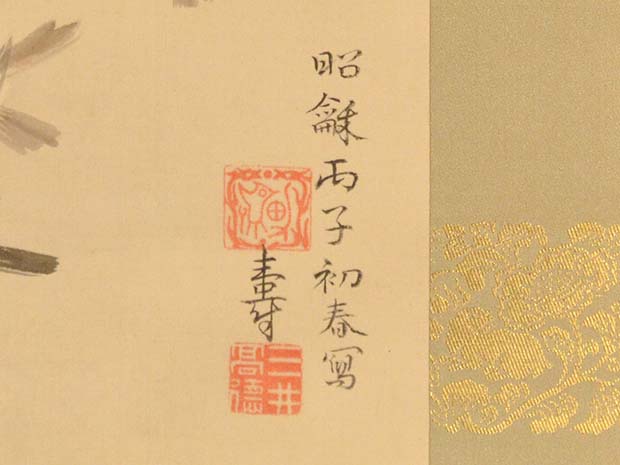 昭龢丙子初春寫
壽
三井
髙德